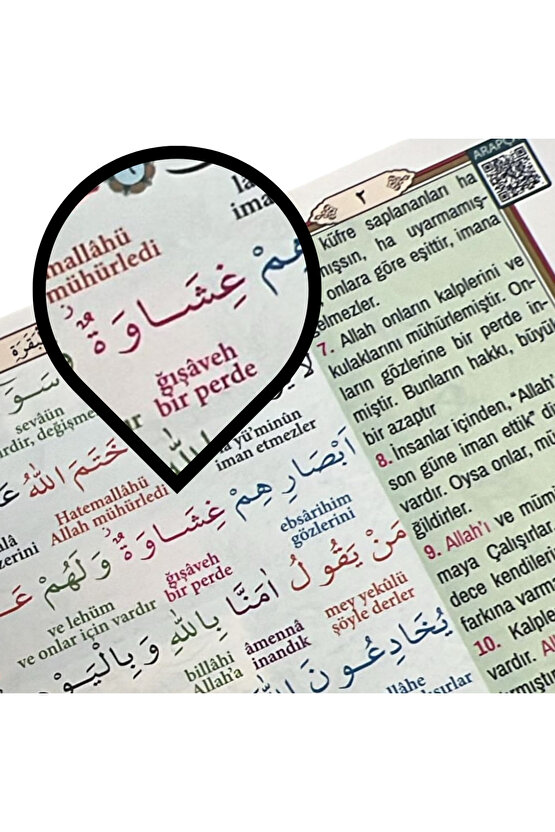 mallâhü
mühürledi
هِمْ غِشَاوَةٌ
ğışâveh
bir perde
ARAPÇ
٢
سَوَ
sevâün
خَتَمَ اللّٰهُ
Hatemallâhü
Allah mühürledi
بِاللّٰهِ
yü'minûn
iman etmezler
اَبْصَارِهِمْ غِشَاوَةٌ وَلَهُمْ عَ
ebsârihim
gözlerini
ğışâveh
bir perde
ve lehüm
ve onlar için vardır
مَنْ يَقُولُ اٰمَنَّا بِاللّٰهِ وَبِالْيَوْ
mey yekûlü
şöyle derler
âmennâ
inandık
billâhi
Allah'a
يُخَادِعُونَ اللّٰهَ
llâhe
küfre saplananları ha
mışsın, ha uyarmamış-
onlara göre eşittir, imana
gelmezler.
7. Allah onların kalplerini ve
kulaklarını mühürlemiştir. On-
ların gözlerine bir perde in-
miştir. Bunların hakkı, büyü
bir azaptır
8. İnsanlar içinden, "Allah
son güne iman ettik" d
vardır. Oysa onlar, mi
ğildirler.
9. Allah'ı ve müm
maya Çalışırlar
dece kendileri
farkına varm
10. Kalple
vardır. Al